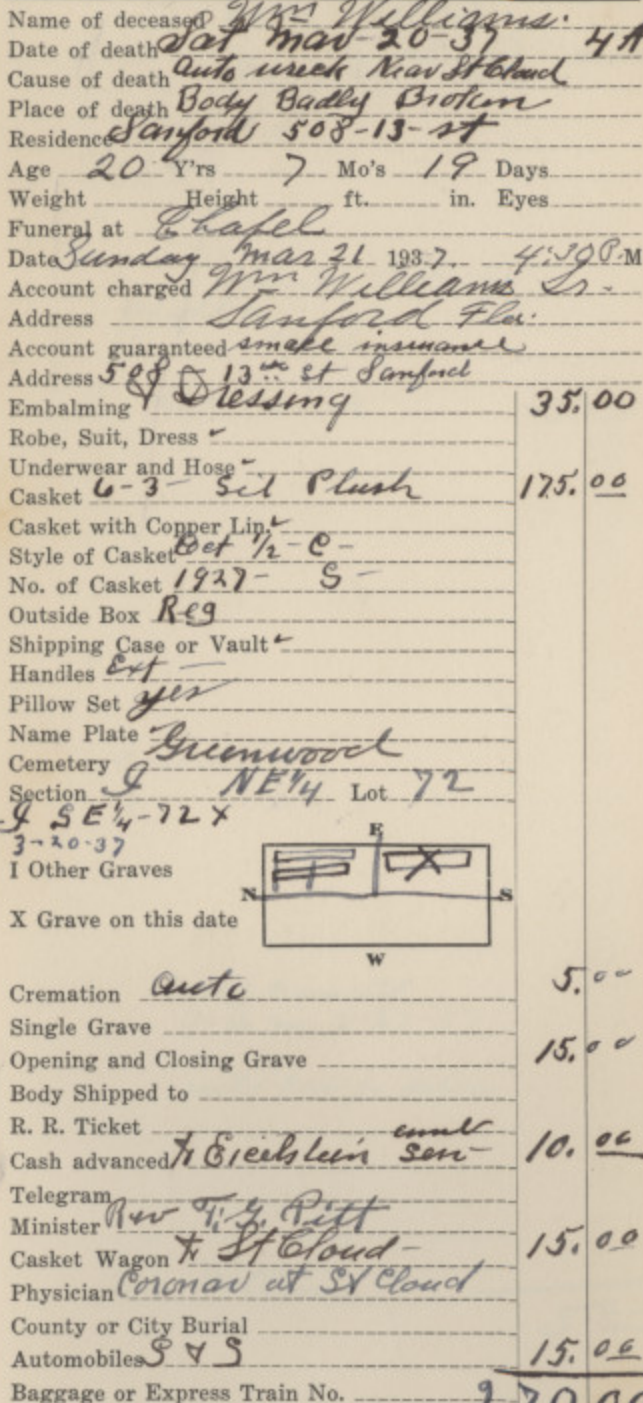 Name of deceased Wm Williams.
Date of death Sat Mar-20-37 4 A
Cause of death Auto wreck Near St Cloud
Place of death Body Badly Broken
Residence Sanford 508-13-st
Age 20 Y'rs 7 Mo's 19 Days
Weight Height ft. in. Eyes
Funeral at Chapel
Date Sunday Mar 21 1937. 4:30 P.M
Account charged Wm Williams Sr.
Address Sanford Fla.
Account guaranteed small insurance
Address 508 13th St Sanford
Embalming & Dressing 35.00
Robe, Suit, Dress
Underwear and Hose
Casket 6-3- Sil Plush 175.00
Casket with Copper Lin.
Style of Casket Oct 1/2-C-
No. of Casket 1927- S-
Outside Box Reg
Shipping Case or Vault
Handles Ext -
Pillow Set yes
Name Plate
Cemetery Greenwood
Section I NE 1/4 Lot 72
I SE 1/4-72 X
3-20-37
E
I Other Graves
N S
X Grave on this date
W
Cremation Auto 5.00
Single Grave
Opening and Closing Grave 15.00
Body Shipped to
R. R. Ticket
Cash advanced 10.00
Telegram
Minister Rev T. G. Pitt
Casket Wagon St Cloud- 15.00
Physician Coronar at St Cloud
County or City Burial
Automobiles S & S 15.00
Baggage or Express Train No. 270.00